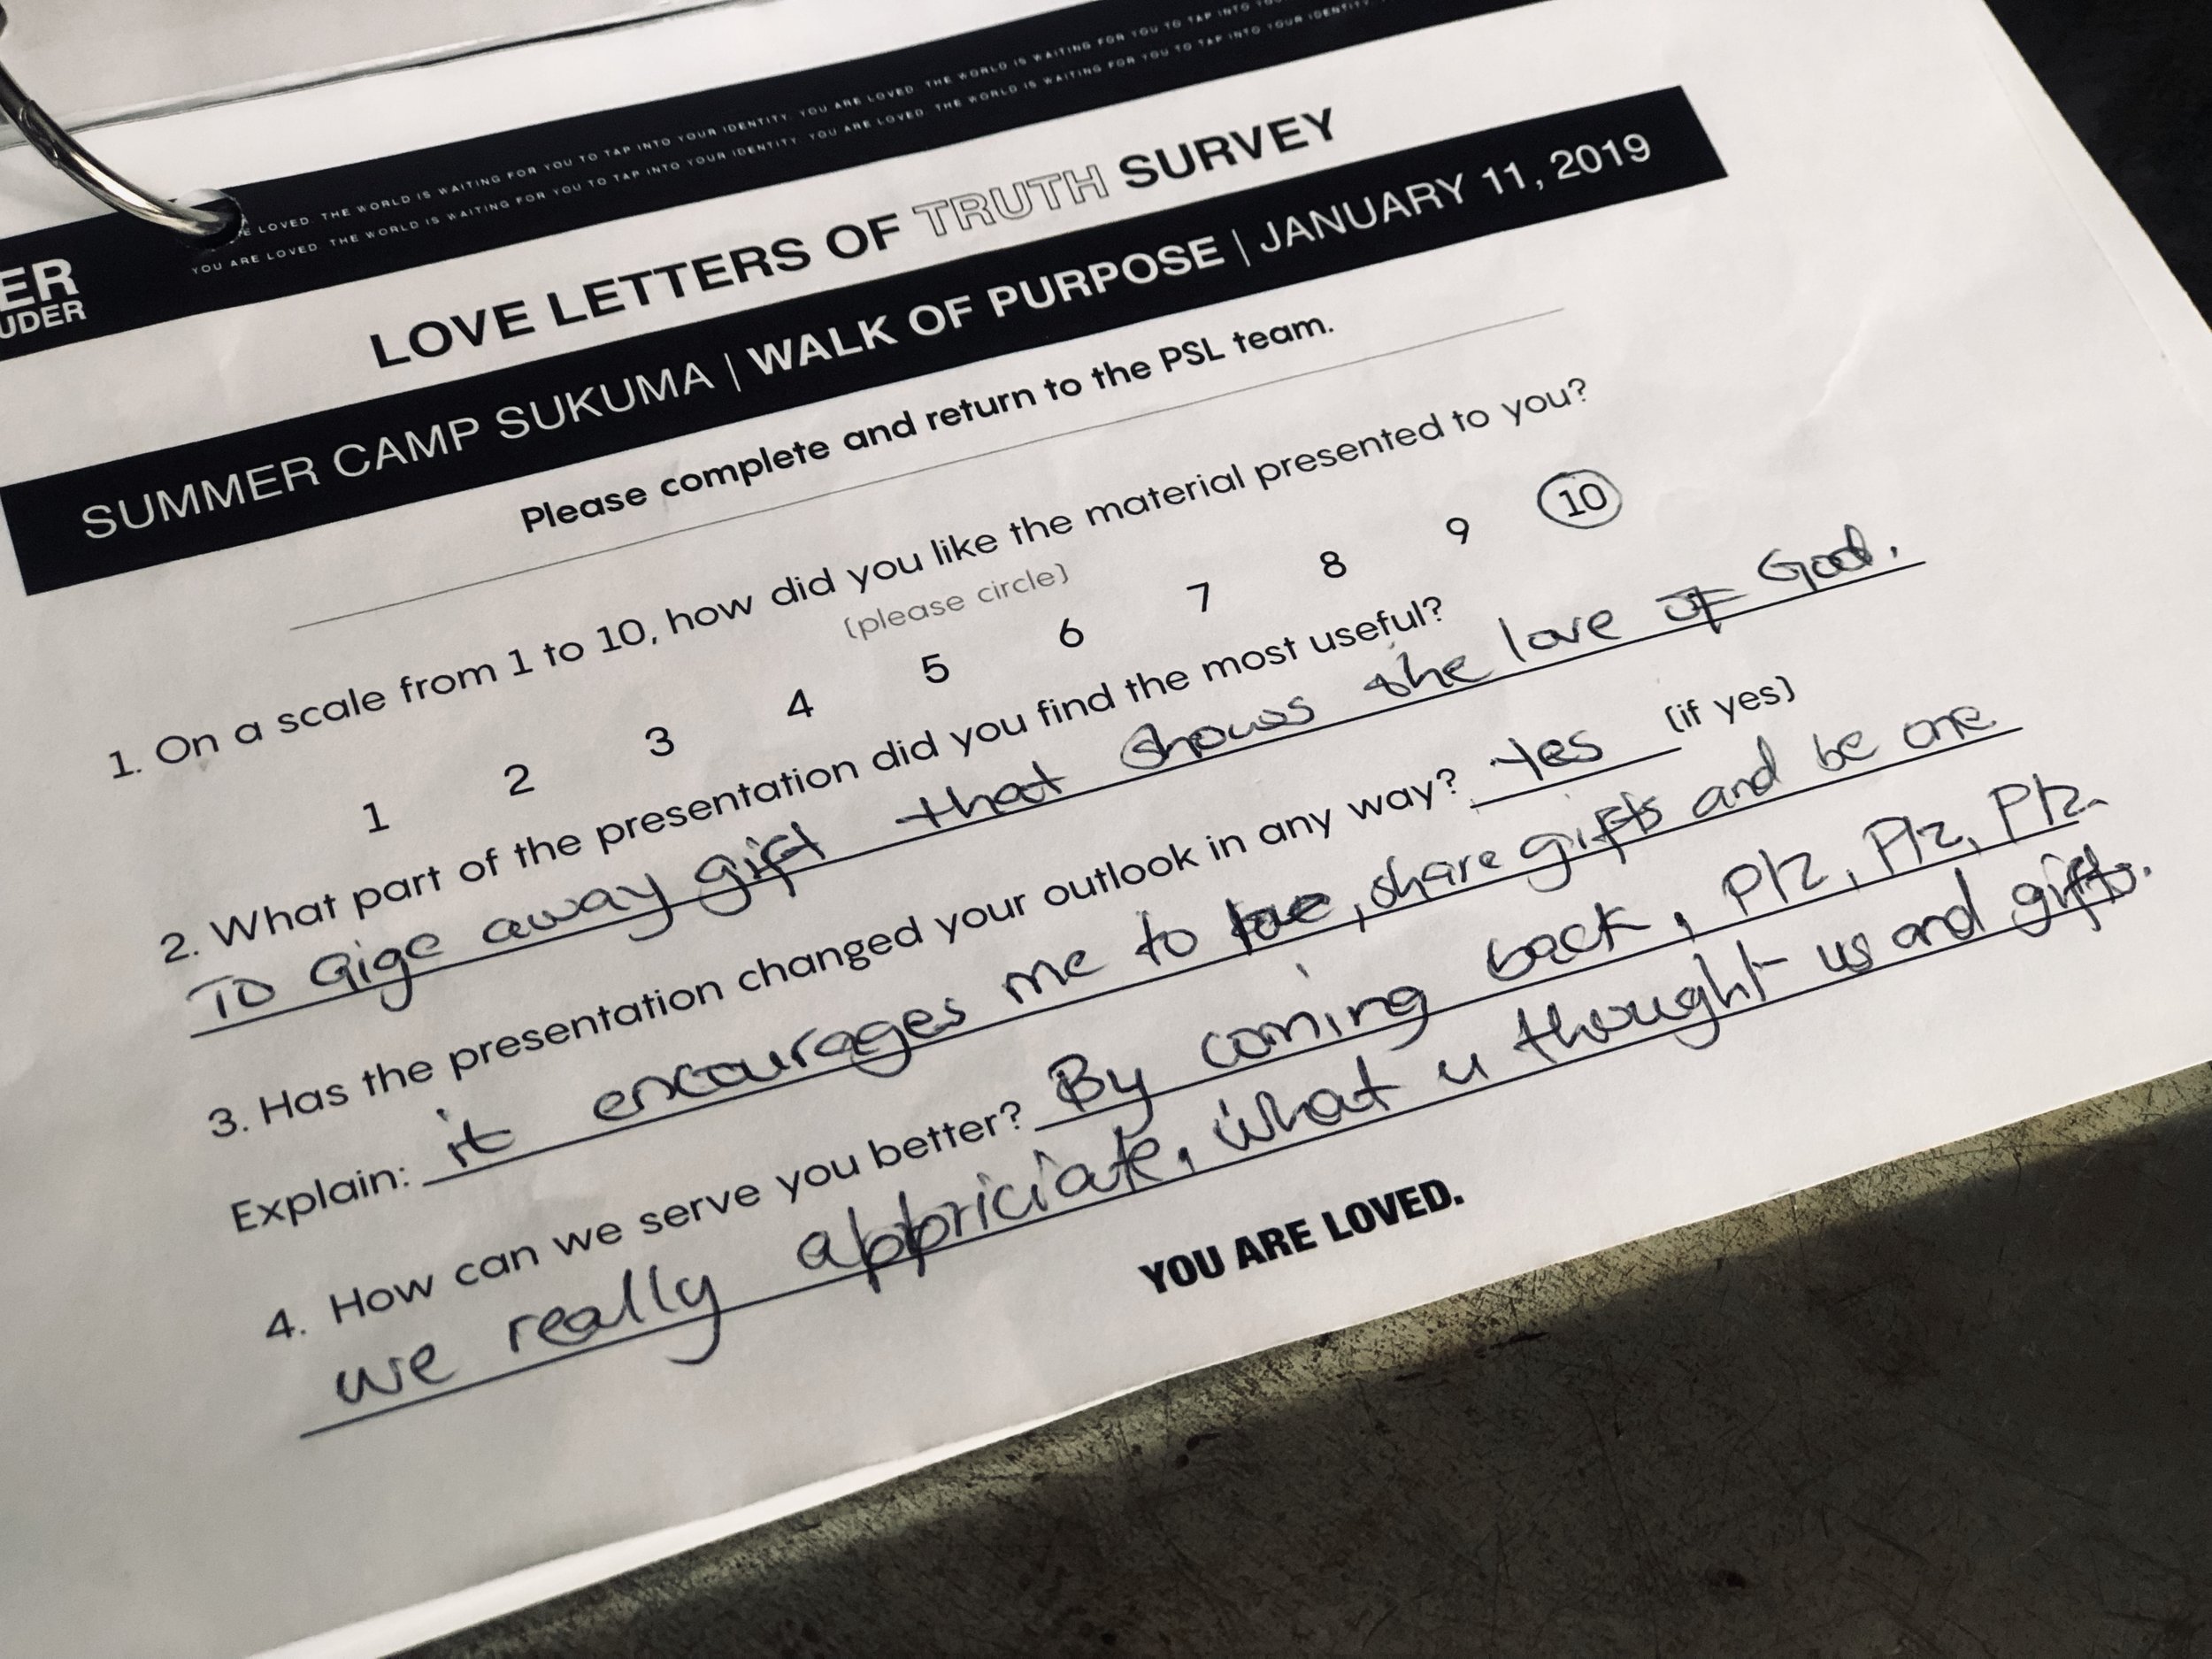 YOU ARE LOVED. THE WORLD IS WAITING FOR YOU TO TAP INTO YOUR IDENTITY. YOU ARE LOVED. THE WORLD IS WAITING FOR YOU TO TAP INTO
YOU ARE LOVED. THE WORLD IS WAITING FOR YOU TO TAP INTO YOUR IDENTITY. YOU ARE LOVED. THE WORLD IS WAITING FOR YOU TO TAP INTO YOUR IDENTITY.
ER
UDER
LOVE LETTERS OF TRUTH SURVEY
SUMMER CAMP SUKUMA | WALK OF PURPOSE | JANUARY 11, 2019
Please complete and return to the PSL team.
1. On a scale from 1 to 10, how did you like the material presented to you?
(please circle)
1 2 3 4 5 6 7 8 9 10
2. What part of the presentation did you find the most useful?
To Gige away gift that shows the love of God.
3. Has the presentation changed your outlook in any way? Yes (if yes)
Explain: it encourages me to love, share gifts and be one
4. How can we serve you better? By coming back, Plz, Plz, Plz.
we really appriciate, what u thought us and gifts.
YOU ARE LOVED.